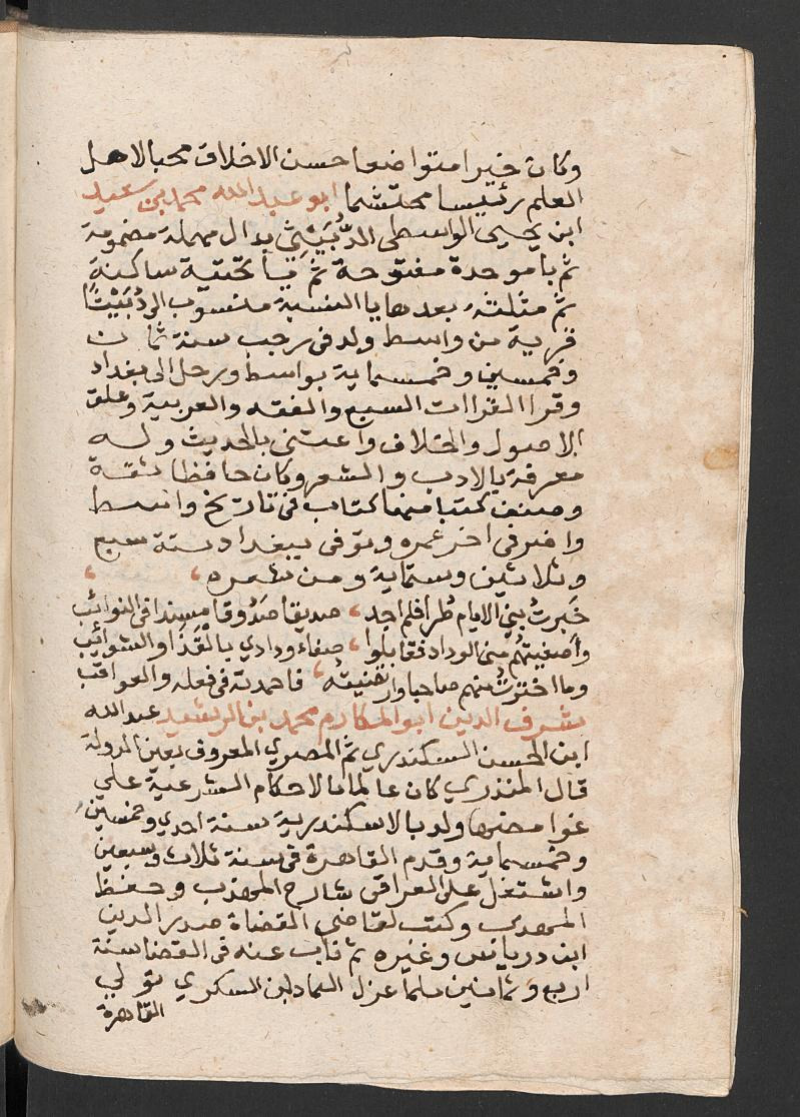 وكان خيرا متواضعا حسن الاخلاق محبا لاهل
العلم رئيسا محتشما ابو عبد الله محمد بن سعيد
ابن يحيى الواسطى الدُّبَيْثِي بدال مهملة مضمومة
ثم با موحدة مفتوحة ثم يا تحتية ساكنة
ثم مثلثة بعدها يا النسبة منسوب الى دُبَيْثا
قرية من واسط ولد فى رجب سنة ثمان
وخمسين وخمسماية بواسط ورحل الى بغداد
وقرا القراات السبع والفقه والعربية وعلق
الاصول والخلاف واعتنى بالحديث وله
معرفة بالادب والشعر وكان حافظا ثقة
وصنف كتبا منها كتاب فى تاريخ واسط
واضر فى اخر عمره وتوفى ببغداد سنة سبع
وثلاثين وستماية ومن شعره
خَبرتُ بني الايام طُرا فلم اجد صديقا صَدُوقا مسندا فى النوائب
وأصفيتهُم منى الوداد فقابلوا صفاء ودادي بالقَذَا والشوائب
وما اخترتُ منهم صاحبا وارتضيتُه فاحمدته فى فعله والعواقب
شرف الدين ابو المكارم محمد بن الرشيد عبد الله
ابن الحسن السكندري ثم المصري المعروف بعين الدولة
قال المنذري كان عالما بالاحكام الشرعية على
غوامضها ولد بالاسكندرية سنة احدي وخمسين
وخمسماية وقدم القاهرة فى سنة ثلاث وسبعين
واشتغل على العراقى شارح المهذب وحفظ
المهذب وكتب لقاضي القضاة صدر الدين
ابن درباس وغيره ثم ناب عنه فى القضا سنة
اربع وثمانين فلما عزل العماد ابن السكري تولي
القاهرة